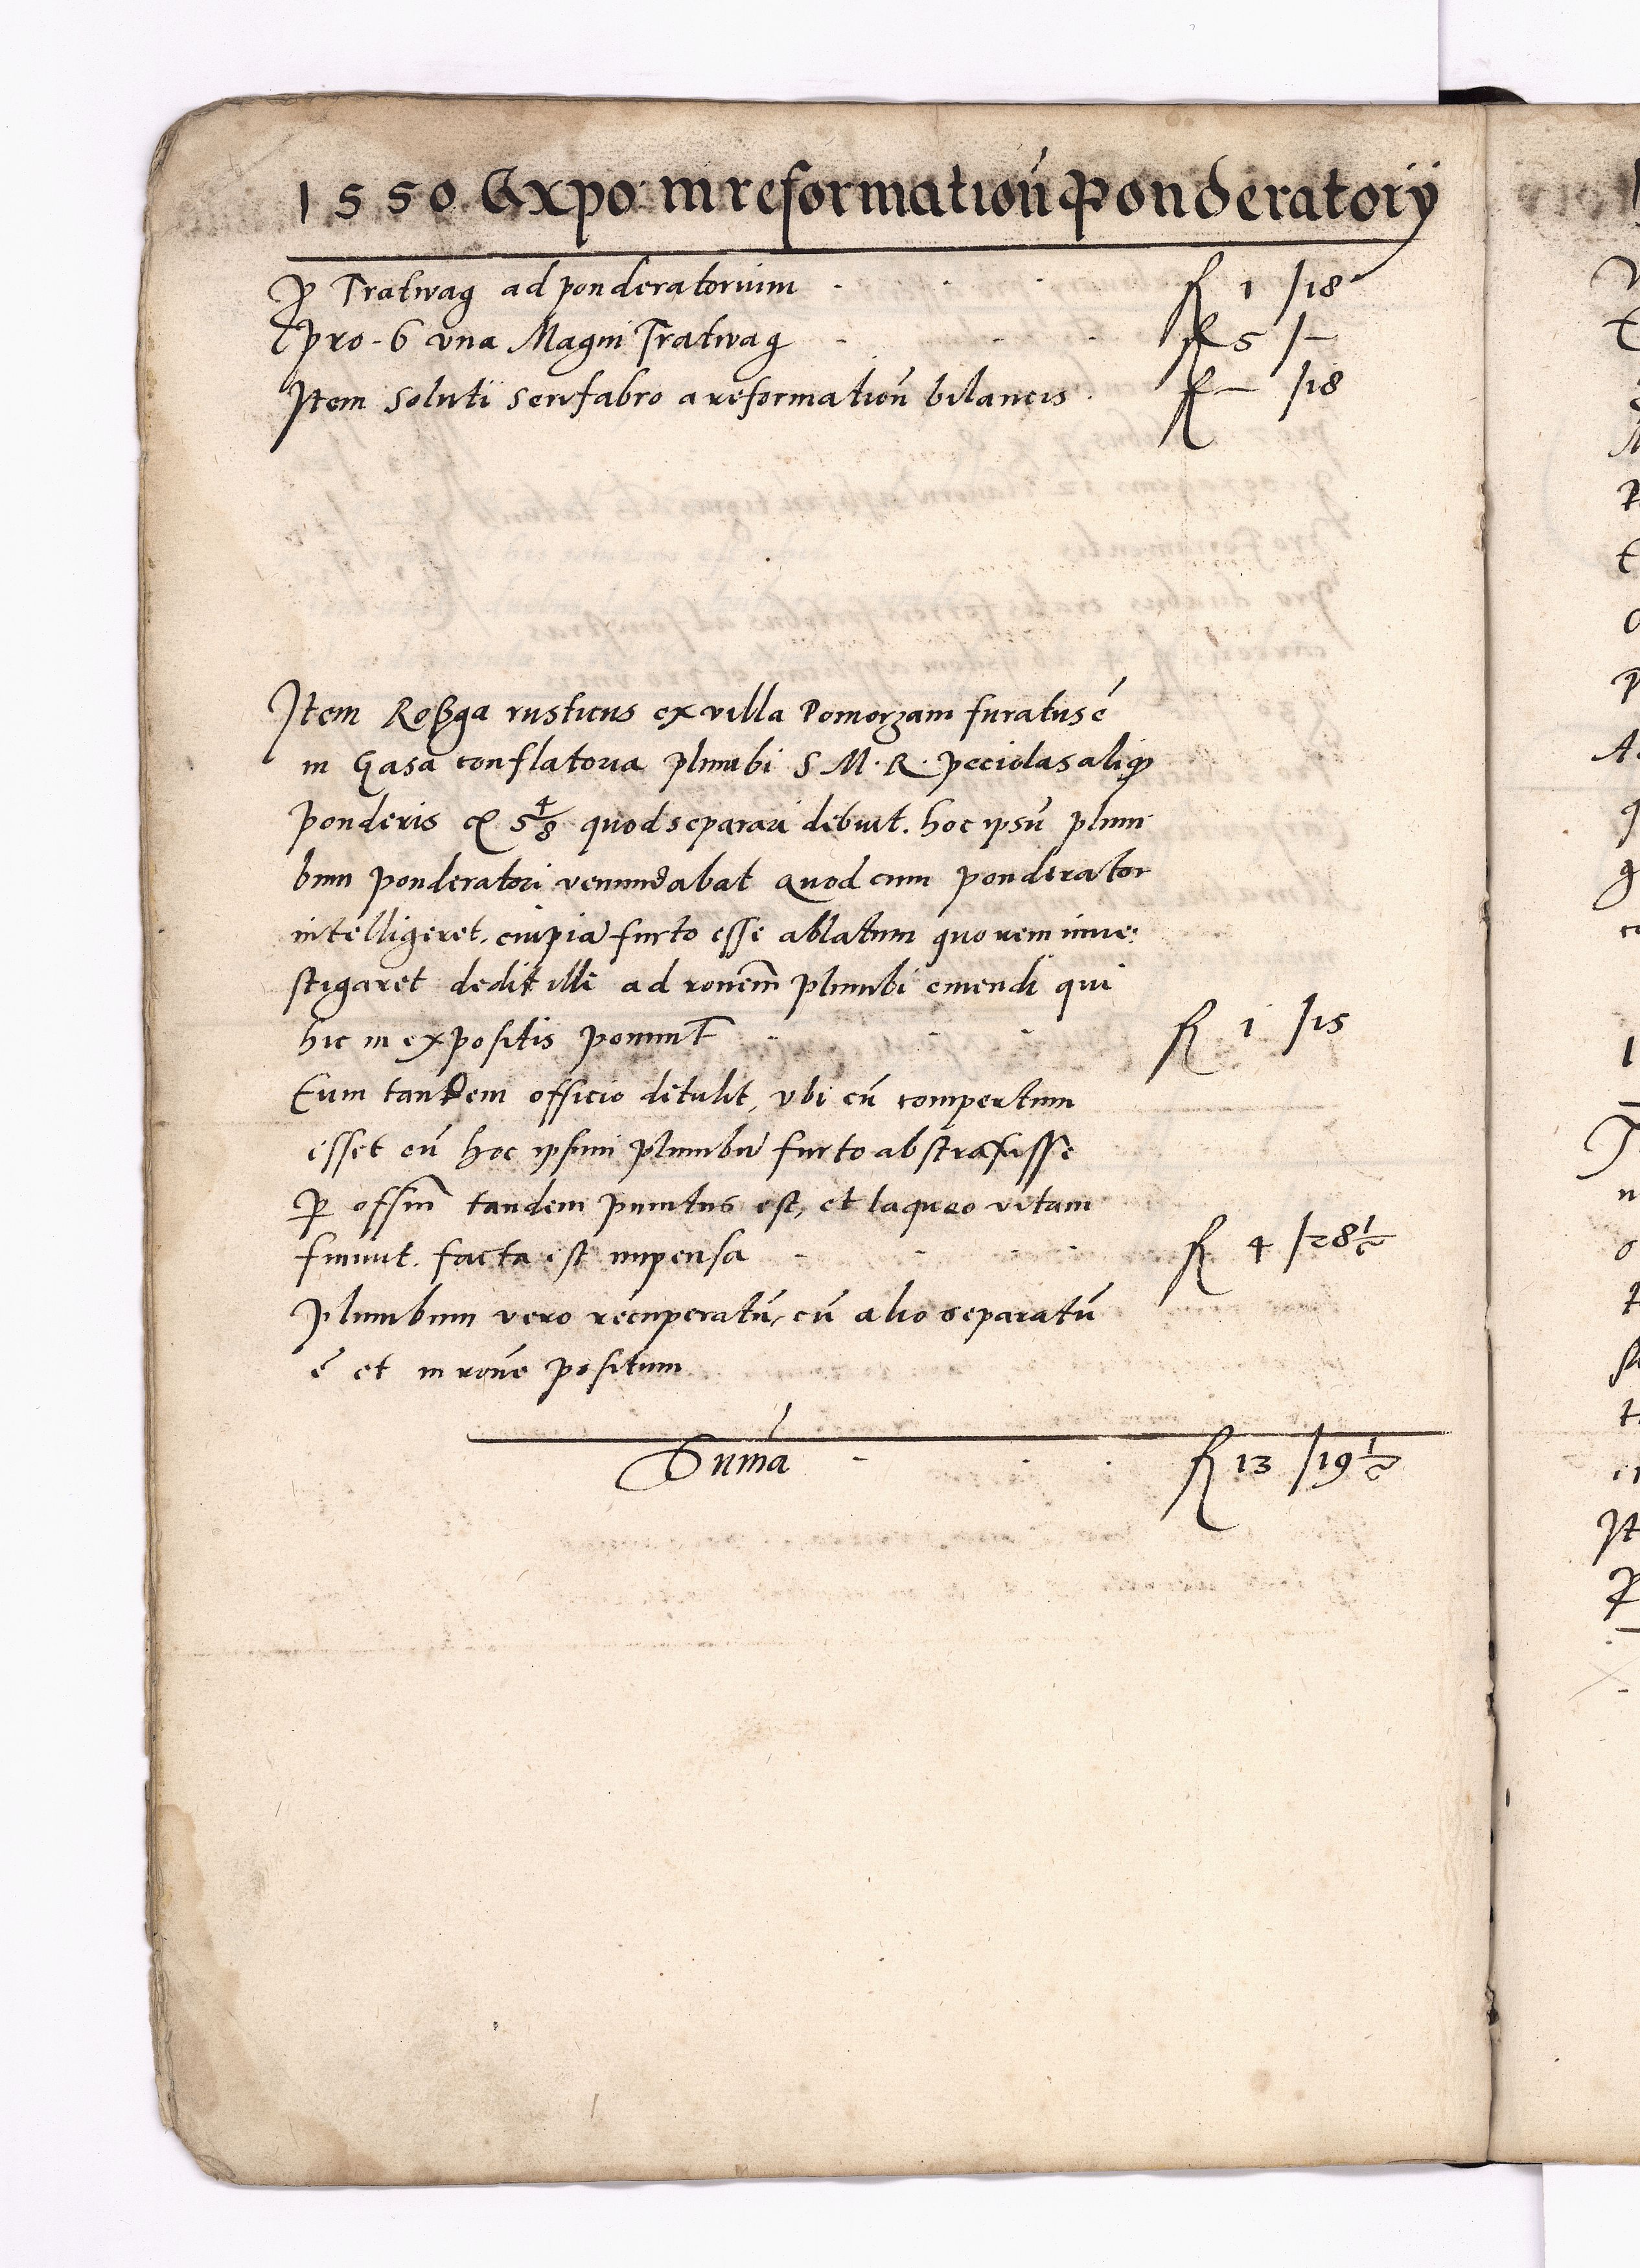 1550 Expo: in reformationū Ponderatorÿ
Pro Tratwag ad ponderatorium fl 1 /18
Pro 6 vna Magni Tratwag fl 5 /–
Item soluti serifabro a reformationū bilancis fl – /18
Item Roßga rusticus ex villa Pomorzani furatus ē
in Gasa conflatoria plumbi S M. R. peciolas aliq
ponderis 5 4/8 quod separari debuit. hoc ipsū plum
bum ponderatori venundabat Quod cum ponderator
intelligeret, furto esse ablatum quo rem inue:
stigaret dedit illi ad ronem plumbi emendi qui
hic in expositis ponunt fl 1 /15
Eum tandem officio detulit, vbi cū compertum
esset eū hoc ipsum plumbū furto abstraxisse
p offim tandem punitus est, et laqueo vitam
finiuit. facta est impensa fl 4 /28 1/2
Plumbum vero recuperatū, cū alio separatū
ē et in rone positum
Suma fl 13 /19 1/2